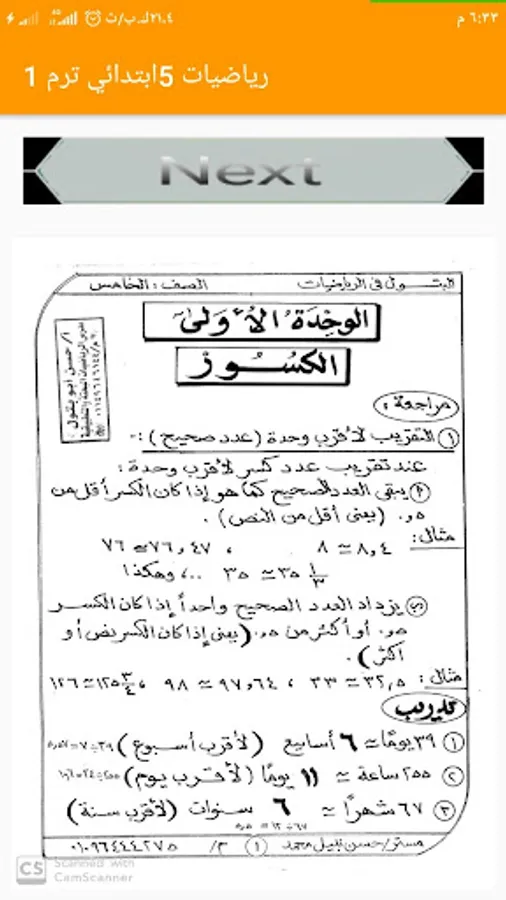 ٢١.٤ك.ب/ث ٦:٣٣ م
رياضيات 5ابتدائي ترم 1
Next
البتول فى الرياضيات الصف: الخامس
الوحدة الأولى
الكسور
أ/حسن أبو بتول
مراجعة:
① التقريب لأقرب وحدة (عدد صحيح):-
عند تقريب عدد كسر لأقرب وحدة:
يبقى العدد الصحيح كما هو إذا كان الكسر أقل من
٠,٥ (يعنى أقل من النص).
مثال: ٨,٤ ≃ ٨ ، ٧٦,٤٧ ≃ ٧٦
٣٥ ١/٣ ≃ ٣٥ ..، وهكذا
يزداد العدد الصحيح واحداً إذا كان الكسر
٠,٥ أو أكثر من ٠,٥ (يعنى إذا كان الكسر نص أو
أكثر).
مثال: ٣٢,٥ ≃ ٣٣ ، ٩٧,٦٤ ≃ ٩٨ ، ١٢٥ ٣/٤ ≃ ١٢٦
تدريب
① ٣٩ يومًا ≃ ٦ أسابيع (لأقرب أسبوع) ٣٩÷٧=٥,٥٧
② ٢٥٥ ساعة ≃ ١١ يومًا (لأقرب يوم) ٢٥٥÷٢٤=١٠,٦
③ ٦٧ شهرًا ≃ ٦ سنوات (لأقرب سنة)
٦٧÷١٢=٥,٥
مستر/حسن نبيل محمد ① م/ ٠١٠٩٦٤٤٤٢٧٥
CS Scanned with
CamScanner